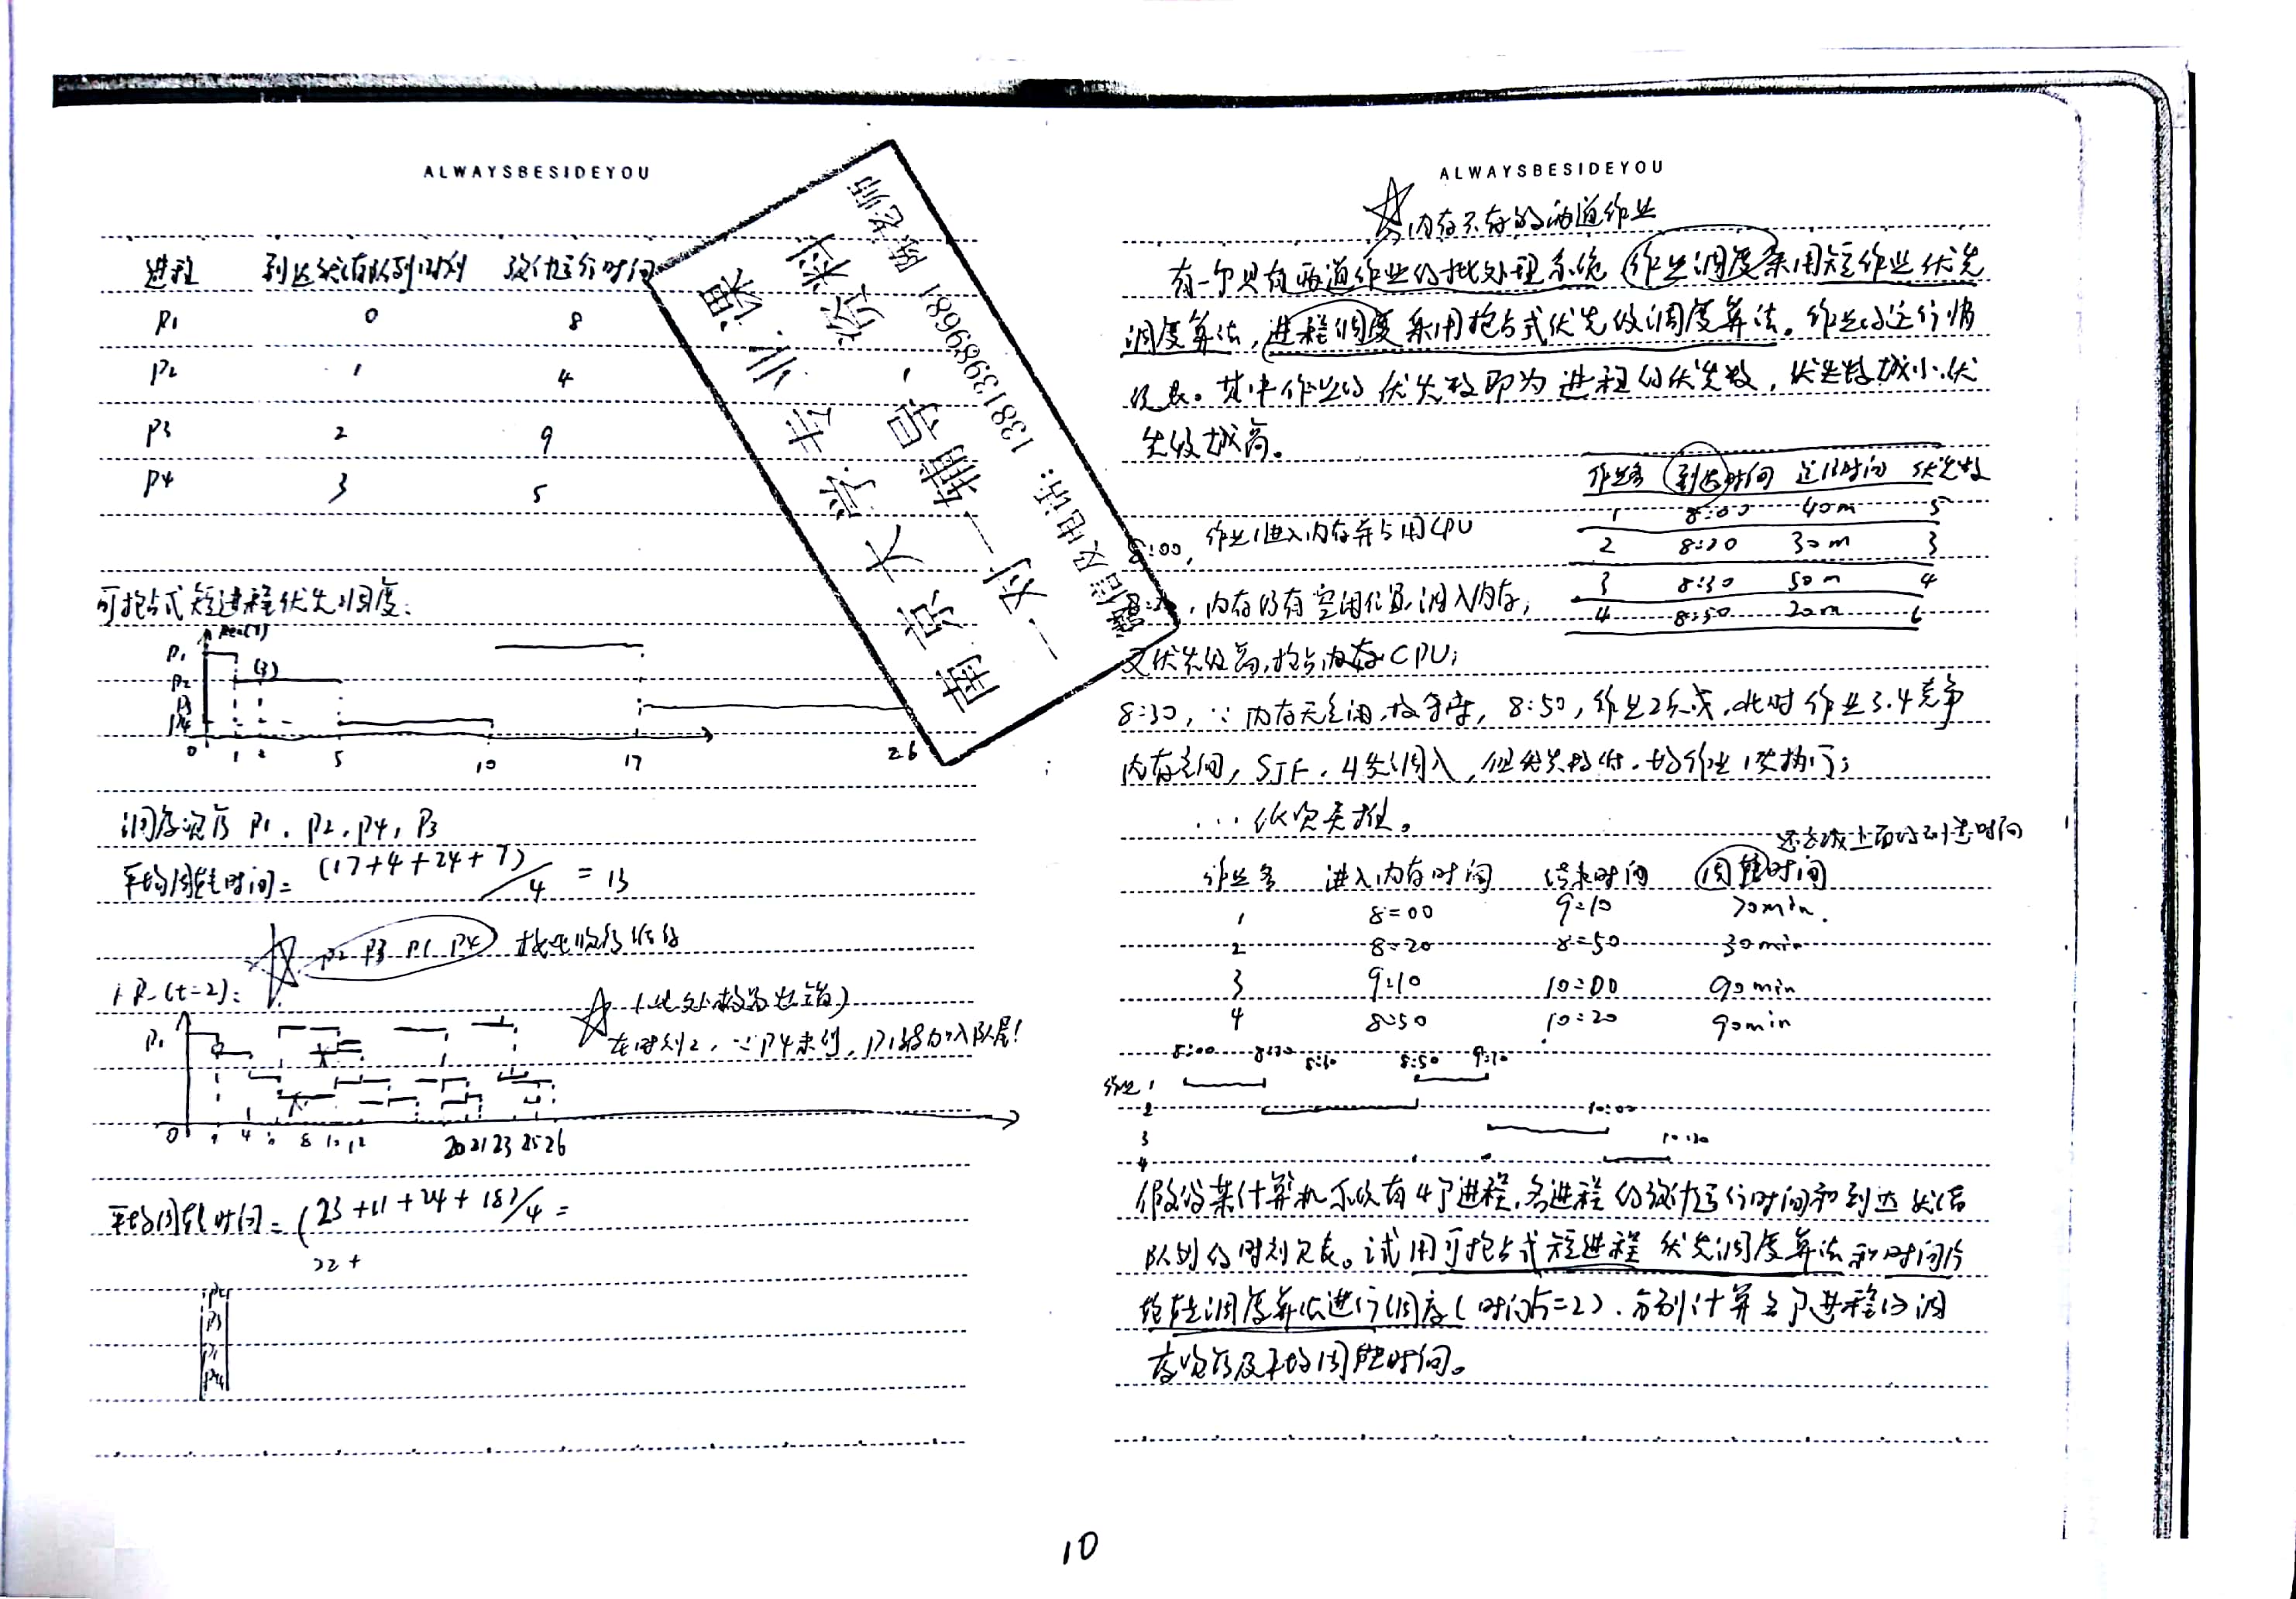 ALWAYSBESIDEYOU
进程 到达就绪队列时刻 预计运行时间
P1 0 8
P2 1 4
P3 2 9
P4 3 5
可抢占式短进程优先调度:
P1
P2 (3)
P3
P4
0 1 2 5 10 17 26
调度次序 P1, P2, P4, P3
平均周转时间= (17+4+24+7)/4 = 13
P2 P3 P1 P4
(t=2):
(此处极易出错)
在时刻2, ∵P4未到, P1将加入队尾!
P1
0 2 4 6 8 10 12 20 21 23 25 26
平均周转时间=(23+11+24+18)/4=
22+
P2
P3
P1
P4
南京大学专业课
一对一辅导、资料
微信及电话: 13813989681 陈老师
ALWAYSBESIDEYOU
内存只存的两道作业
有一个具有两道作业的批处理系统, 作业调度采用短作业优先
调度算法, 进程调度采用抢占式优先级调度算法。作业的运行情
况见表。其中作业的优先数即为进程的优先数, 优先数越小, 优
先级越高。
作业名 到达时间 运行时间 优先数
1 8:00 40m 5
2 8:20 30m 3
3 8:30 50m 4
4 8:50 20m 6
8:00, 作业1进入内存并占用CPU
8:20, 内存仍有空闲位置, 调入内存,
又优先级高, 抢占 CPU;
8:30, ∵内存无空闲, 故等待, 8:50, 作业2完成, 此时作业3.4竞争
内存空间, SJF, 4先调入, 但优先权低, 故作业1先执行;
... 依次类推。
还会减上面的到达时间
作业名 进入内存时间 结束时间 周转时间
1 8:00 9:10 70min.
2 8:20 8:50 30min
3 9:10 10:00 90min
4 8:50 10:20 90min
8:00 8:20 8:30 8:50 9:10
作业1
2 10:00
3 10:20
4
假设某计算机系统有4个进程, 各进程的预计运行时间和到达就绪
队列的时刻见表。试用可抢占式短进程优先调度算法和时间片
轮转调度算法进行调度(时间片=2). 分别计算各个进程的调
度次序及平均周转时间。
10